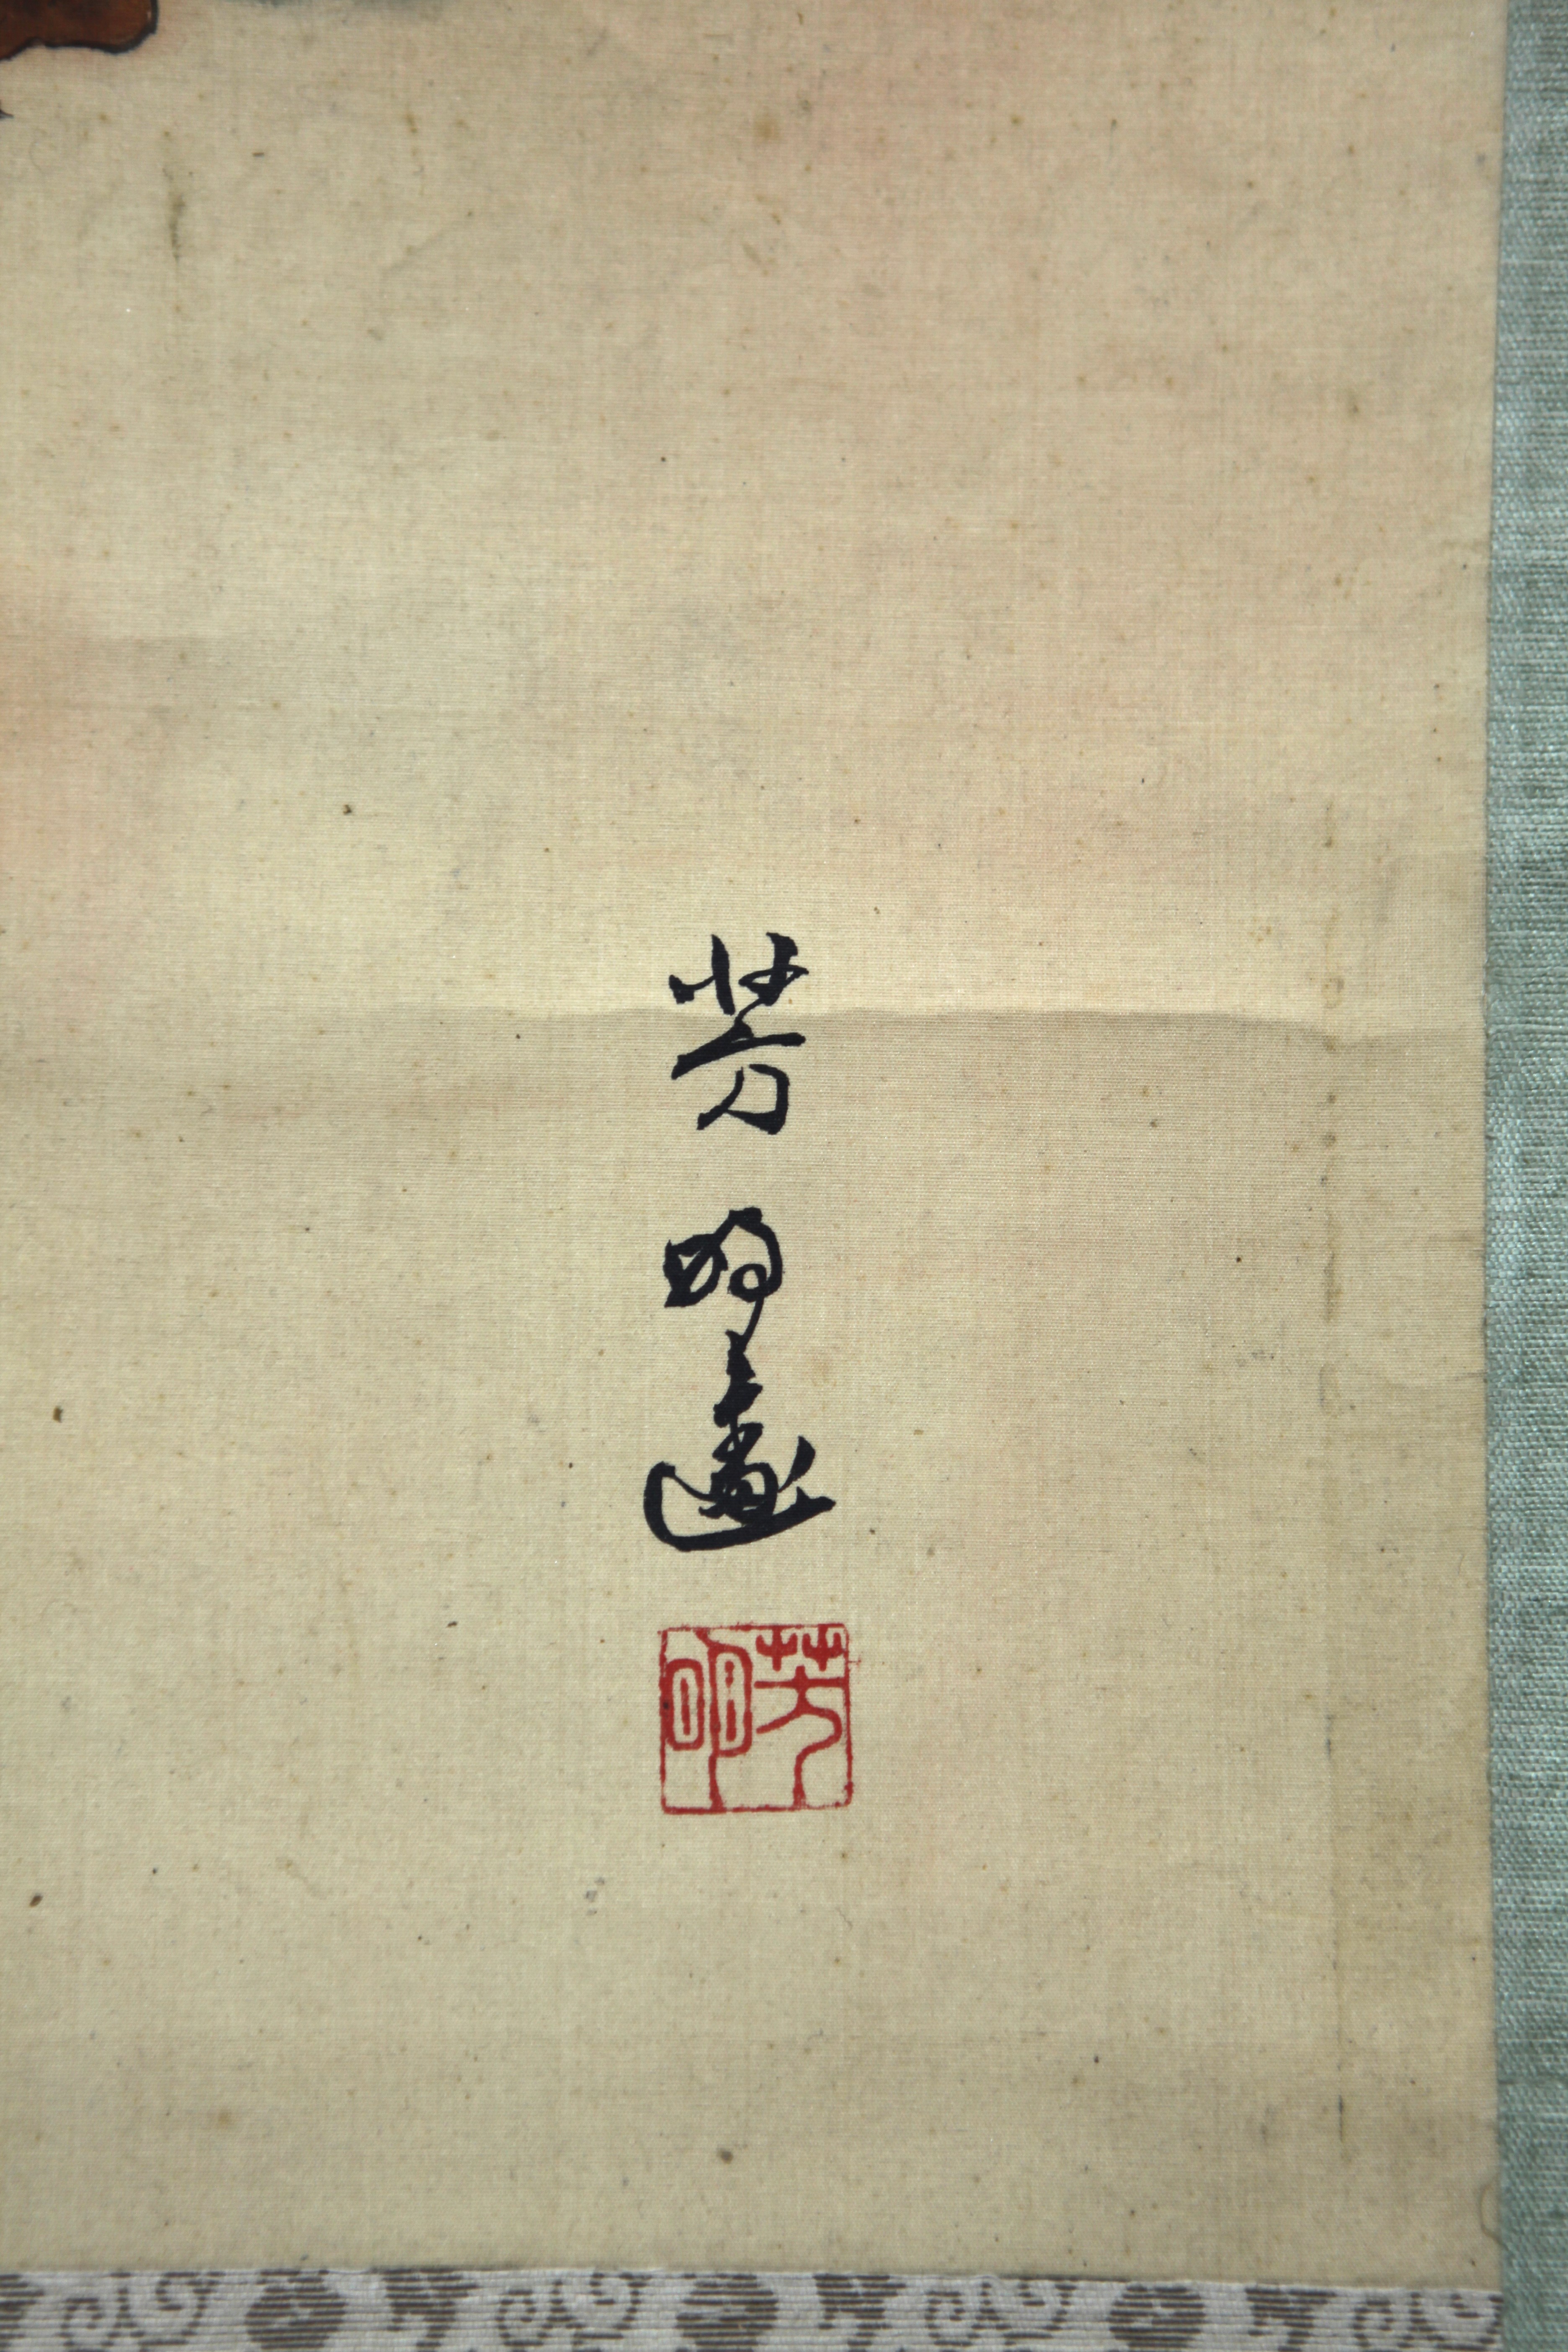 芳明畫
芳明